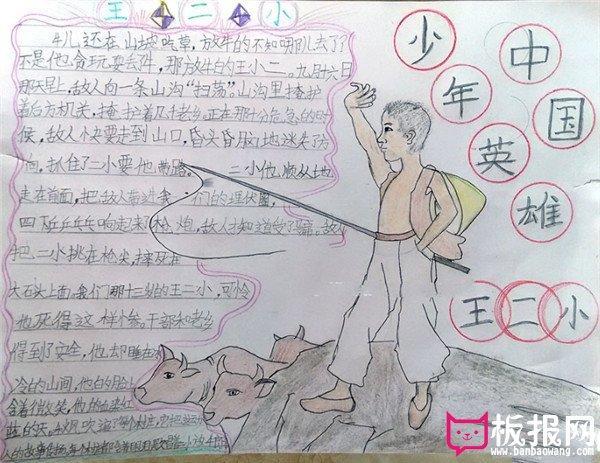 王二小
牛儿还在山坡吃草，放牛的不知哪儿去了
不是他贪玩耍丢牛，那放牛的王二小。九月十六日
那天早上，敌人向一条山沟"扫荡"，山沟里掩护
着后方机关，掩护着几千老乡。正在那十分危急的时
候，敌人快要走到山口，昏头昏脑地迷失了方
向，抓住了二小要他带路。二小他顺从地
走在前面，把敌人带进我们的埋伏圈，
四下乒乒乓乓响起来了枪炮，敌人才知道受了骗。敌人
把二小挑在枪尖，摔死在
大石头上面，我们那十三岁的王二小，可怜
他死得这样惨。干部和老乡
得到了安全，他却睡在
冷的山间，他的脸上
含着微笑，他的血染红
蓝的天。秋风吹遍了
少年
中国
英雄
王二小
板报网
www.banbaowang.com